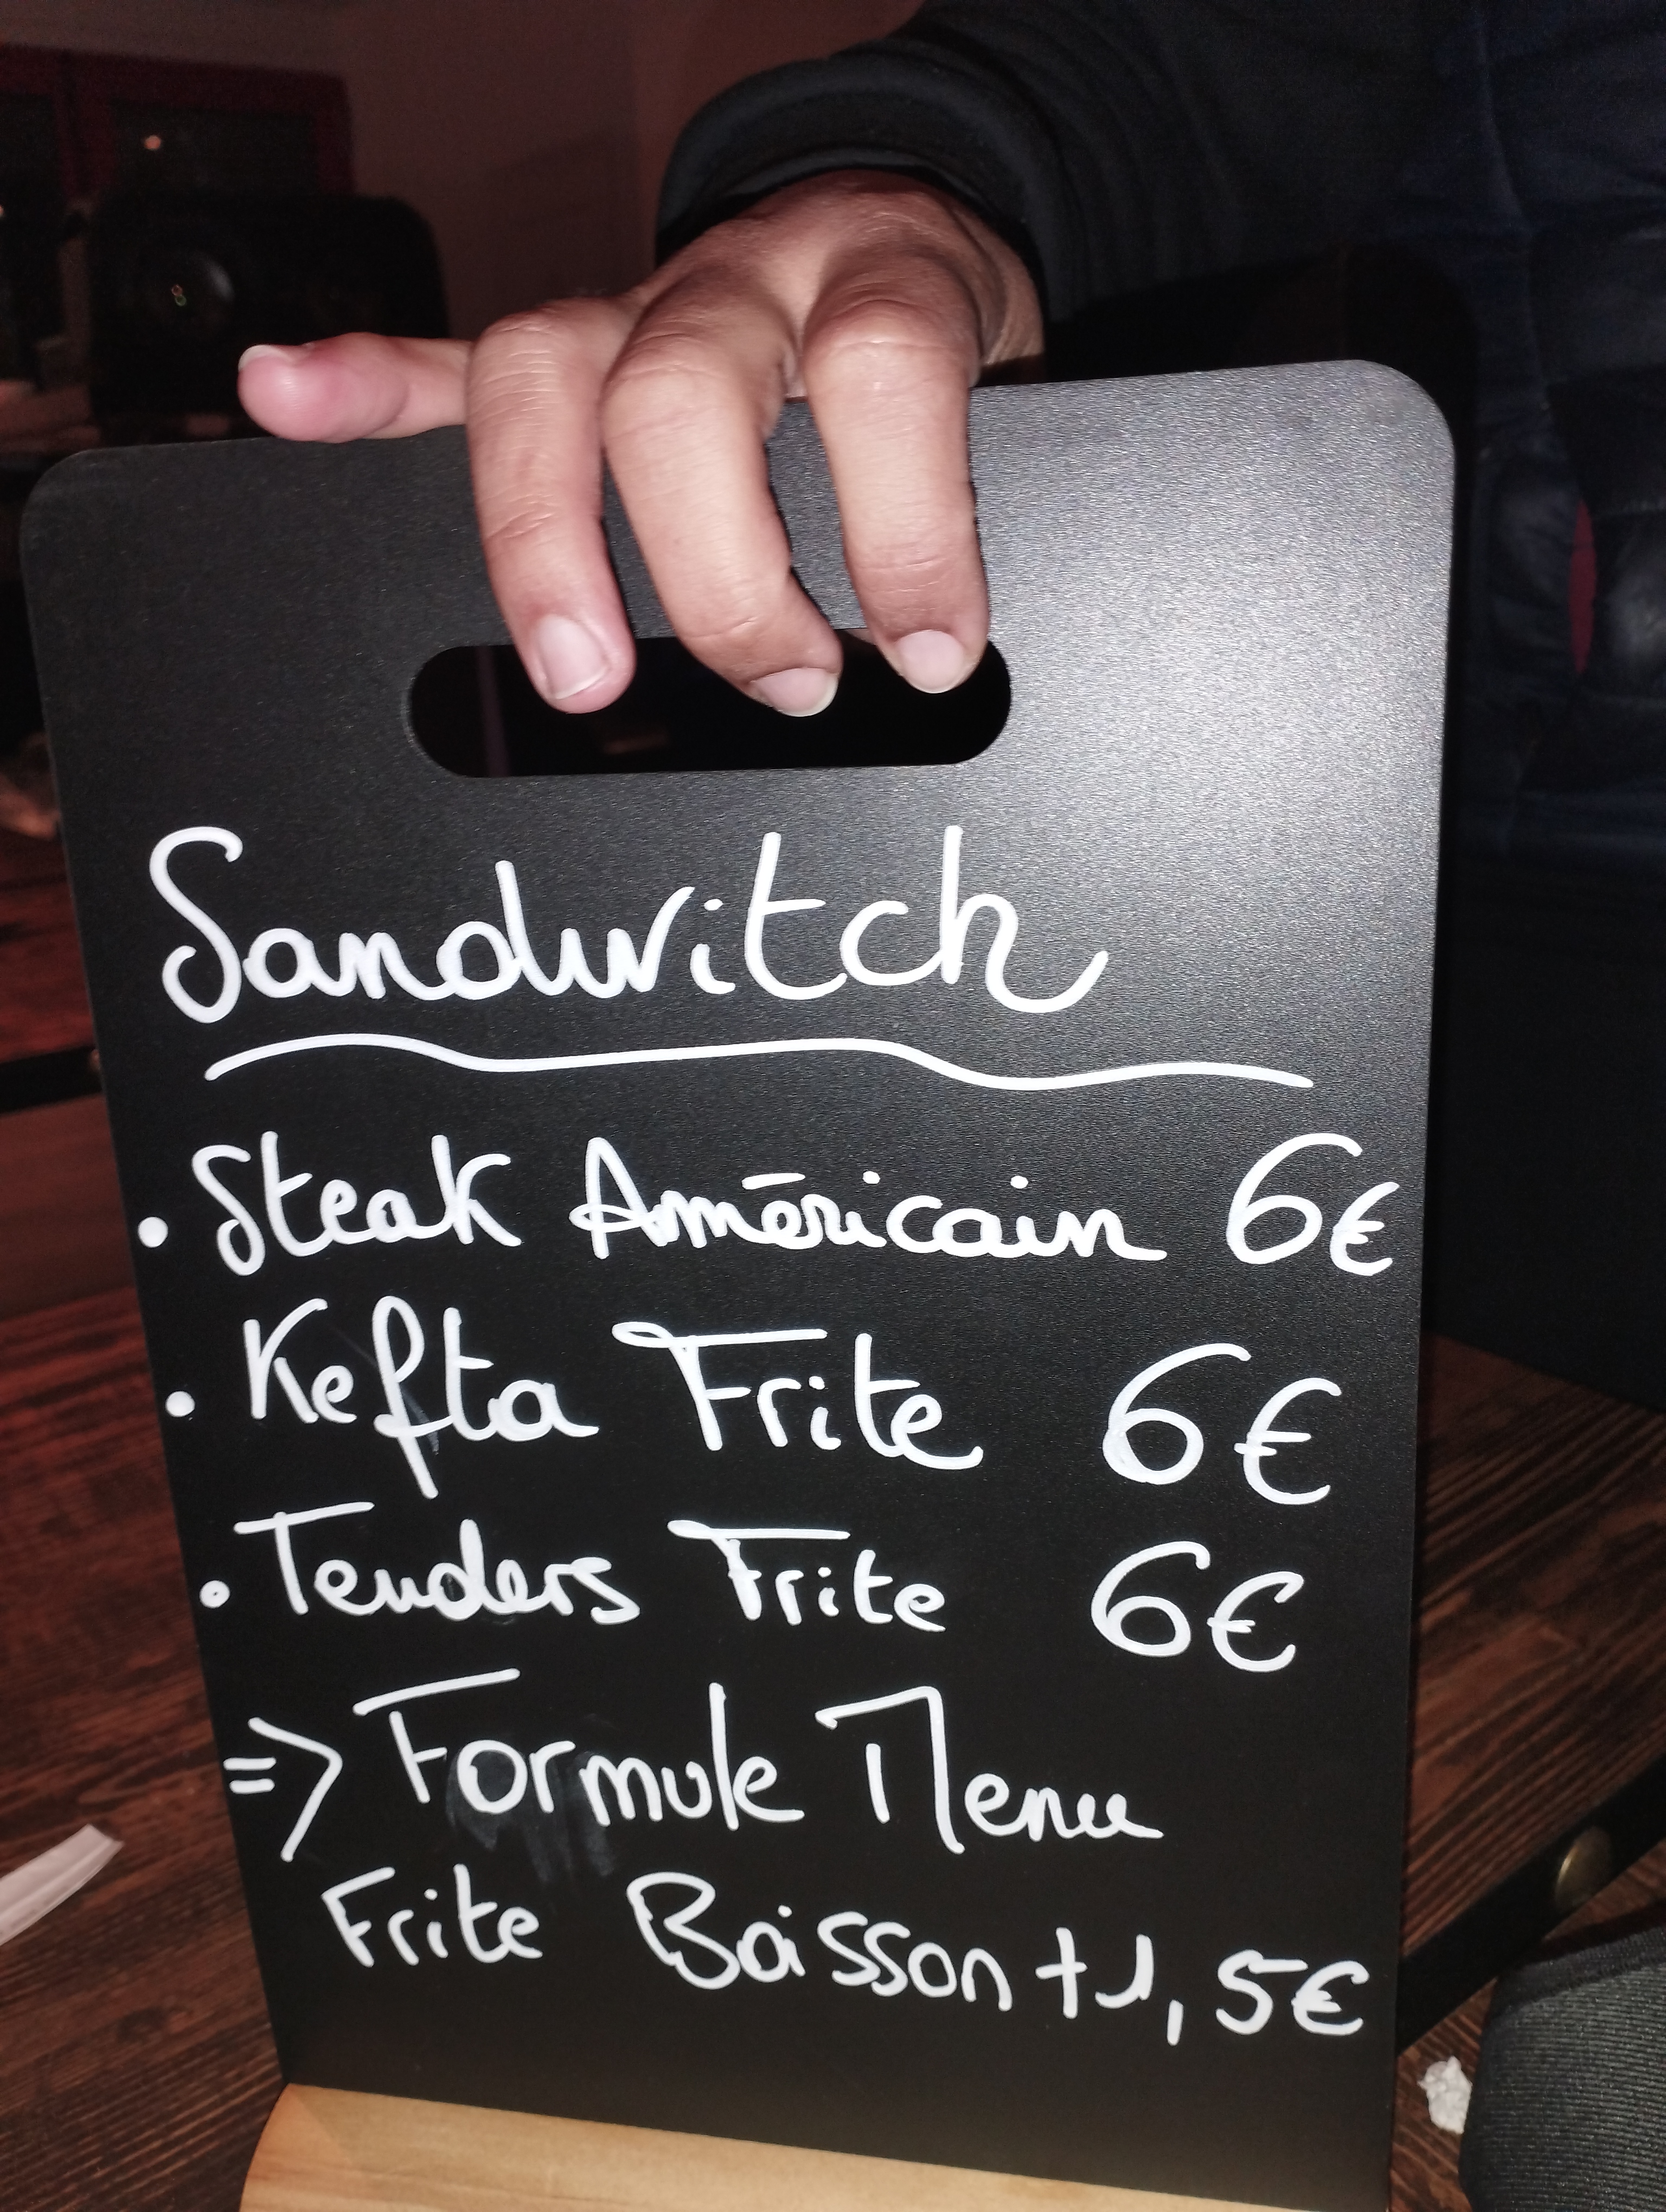 Sandwitch
• Steak Américain 6€
• Kefta Frite 6€
• Tenders Frite 6€
=> Formule Menu
Frite Boisson +1,5€